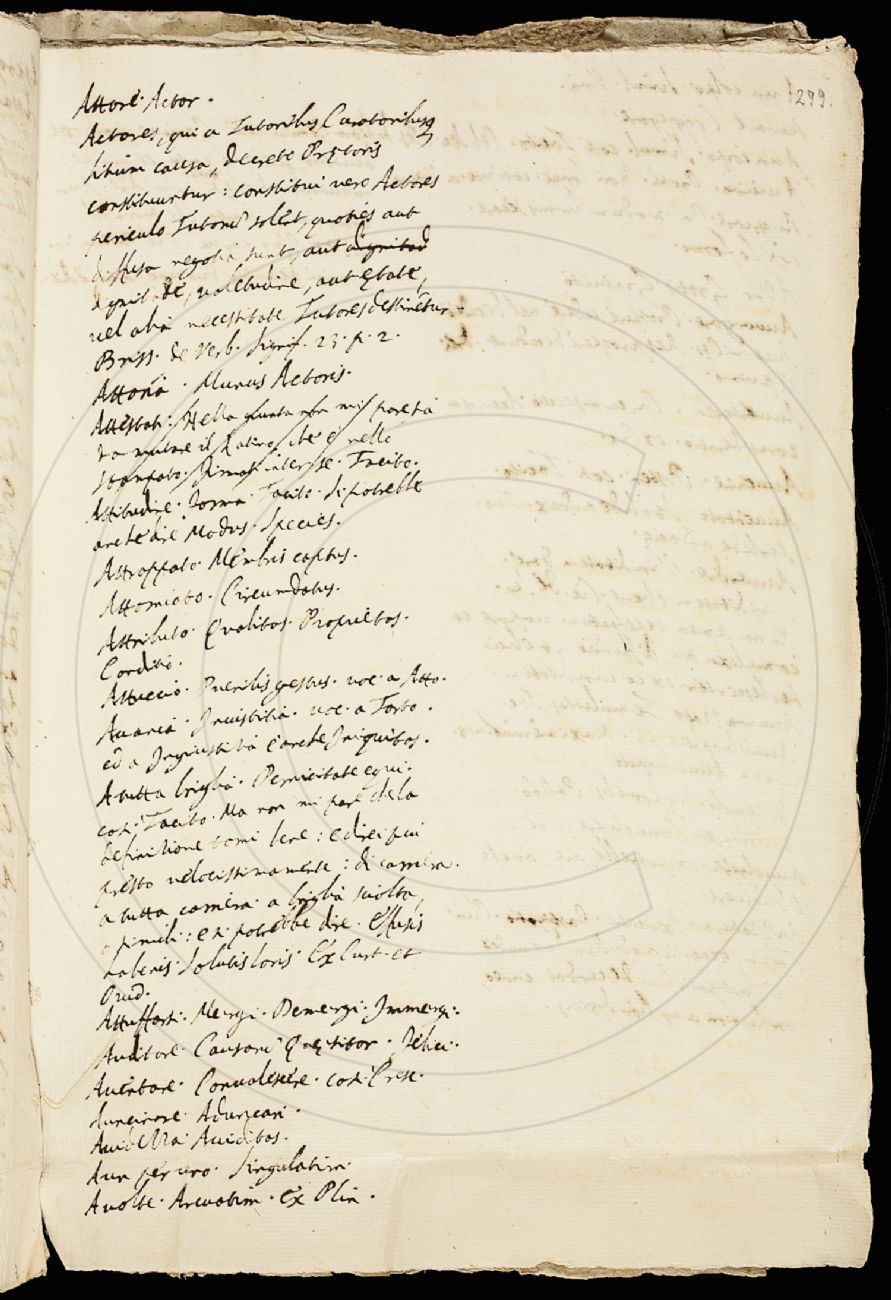 299.
Attore. Actor.
Actores, qui a Tutoribus Curatoribusq
litium causa, decreto Prętoris
constituuntur: constitui vero Actores
periculo Tutorū solēt, quoties aut
diffusa negotia sunt, aut dignitad
dignitade, valetudine, aut ętate,
vel alia necessitate Tutores destinētur.
Briss. de Verb. Signif. 23. p. 2.
Attoria. Munus Actoris.
Attestati: Nella giunta non mi pareria
da mutare il Latino che è nello
stampato. Firmati inter se. Tacito.
Attitudine. Forma. Tacito. Si potrebbe
anche dire Modus. Species.
Attrappato. Membris captus.
Attorniato. Circumdatus.
Attributo. Qualitas. Proprietas.
Conditio.
Attuccio. Puerilis gestus. voc. a Atto.
Avania. Iniustitia. voc. a Torto.
ed a Ingiustitia è anche Iniquitas.
A tutta briglia. Pernicitate equi.
così Tacito. Ma non mi pare che la
definitione torni bene: e direi piu
presto velocissimamente: di carriera.
a tutta carriera. a briglia sciolta,
o simili: e si potrebbe dire. Effusis
habenis. Solutis loris. Ex Curt. et
Ovid.
Attuffarsi. Mergi. Demergi. Immergi.
Auditore. Causarū Quęsitor. Felici.
Aventare. Convalescere. così Cresc.
Auncinare. Aduncari.
Avidezza. Aviditas.
A un per uno. Singulatim.
A volte. Arcuatim. Ex Plin.